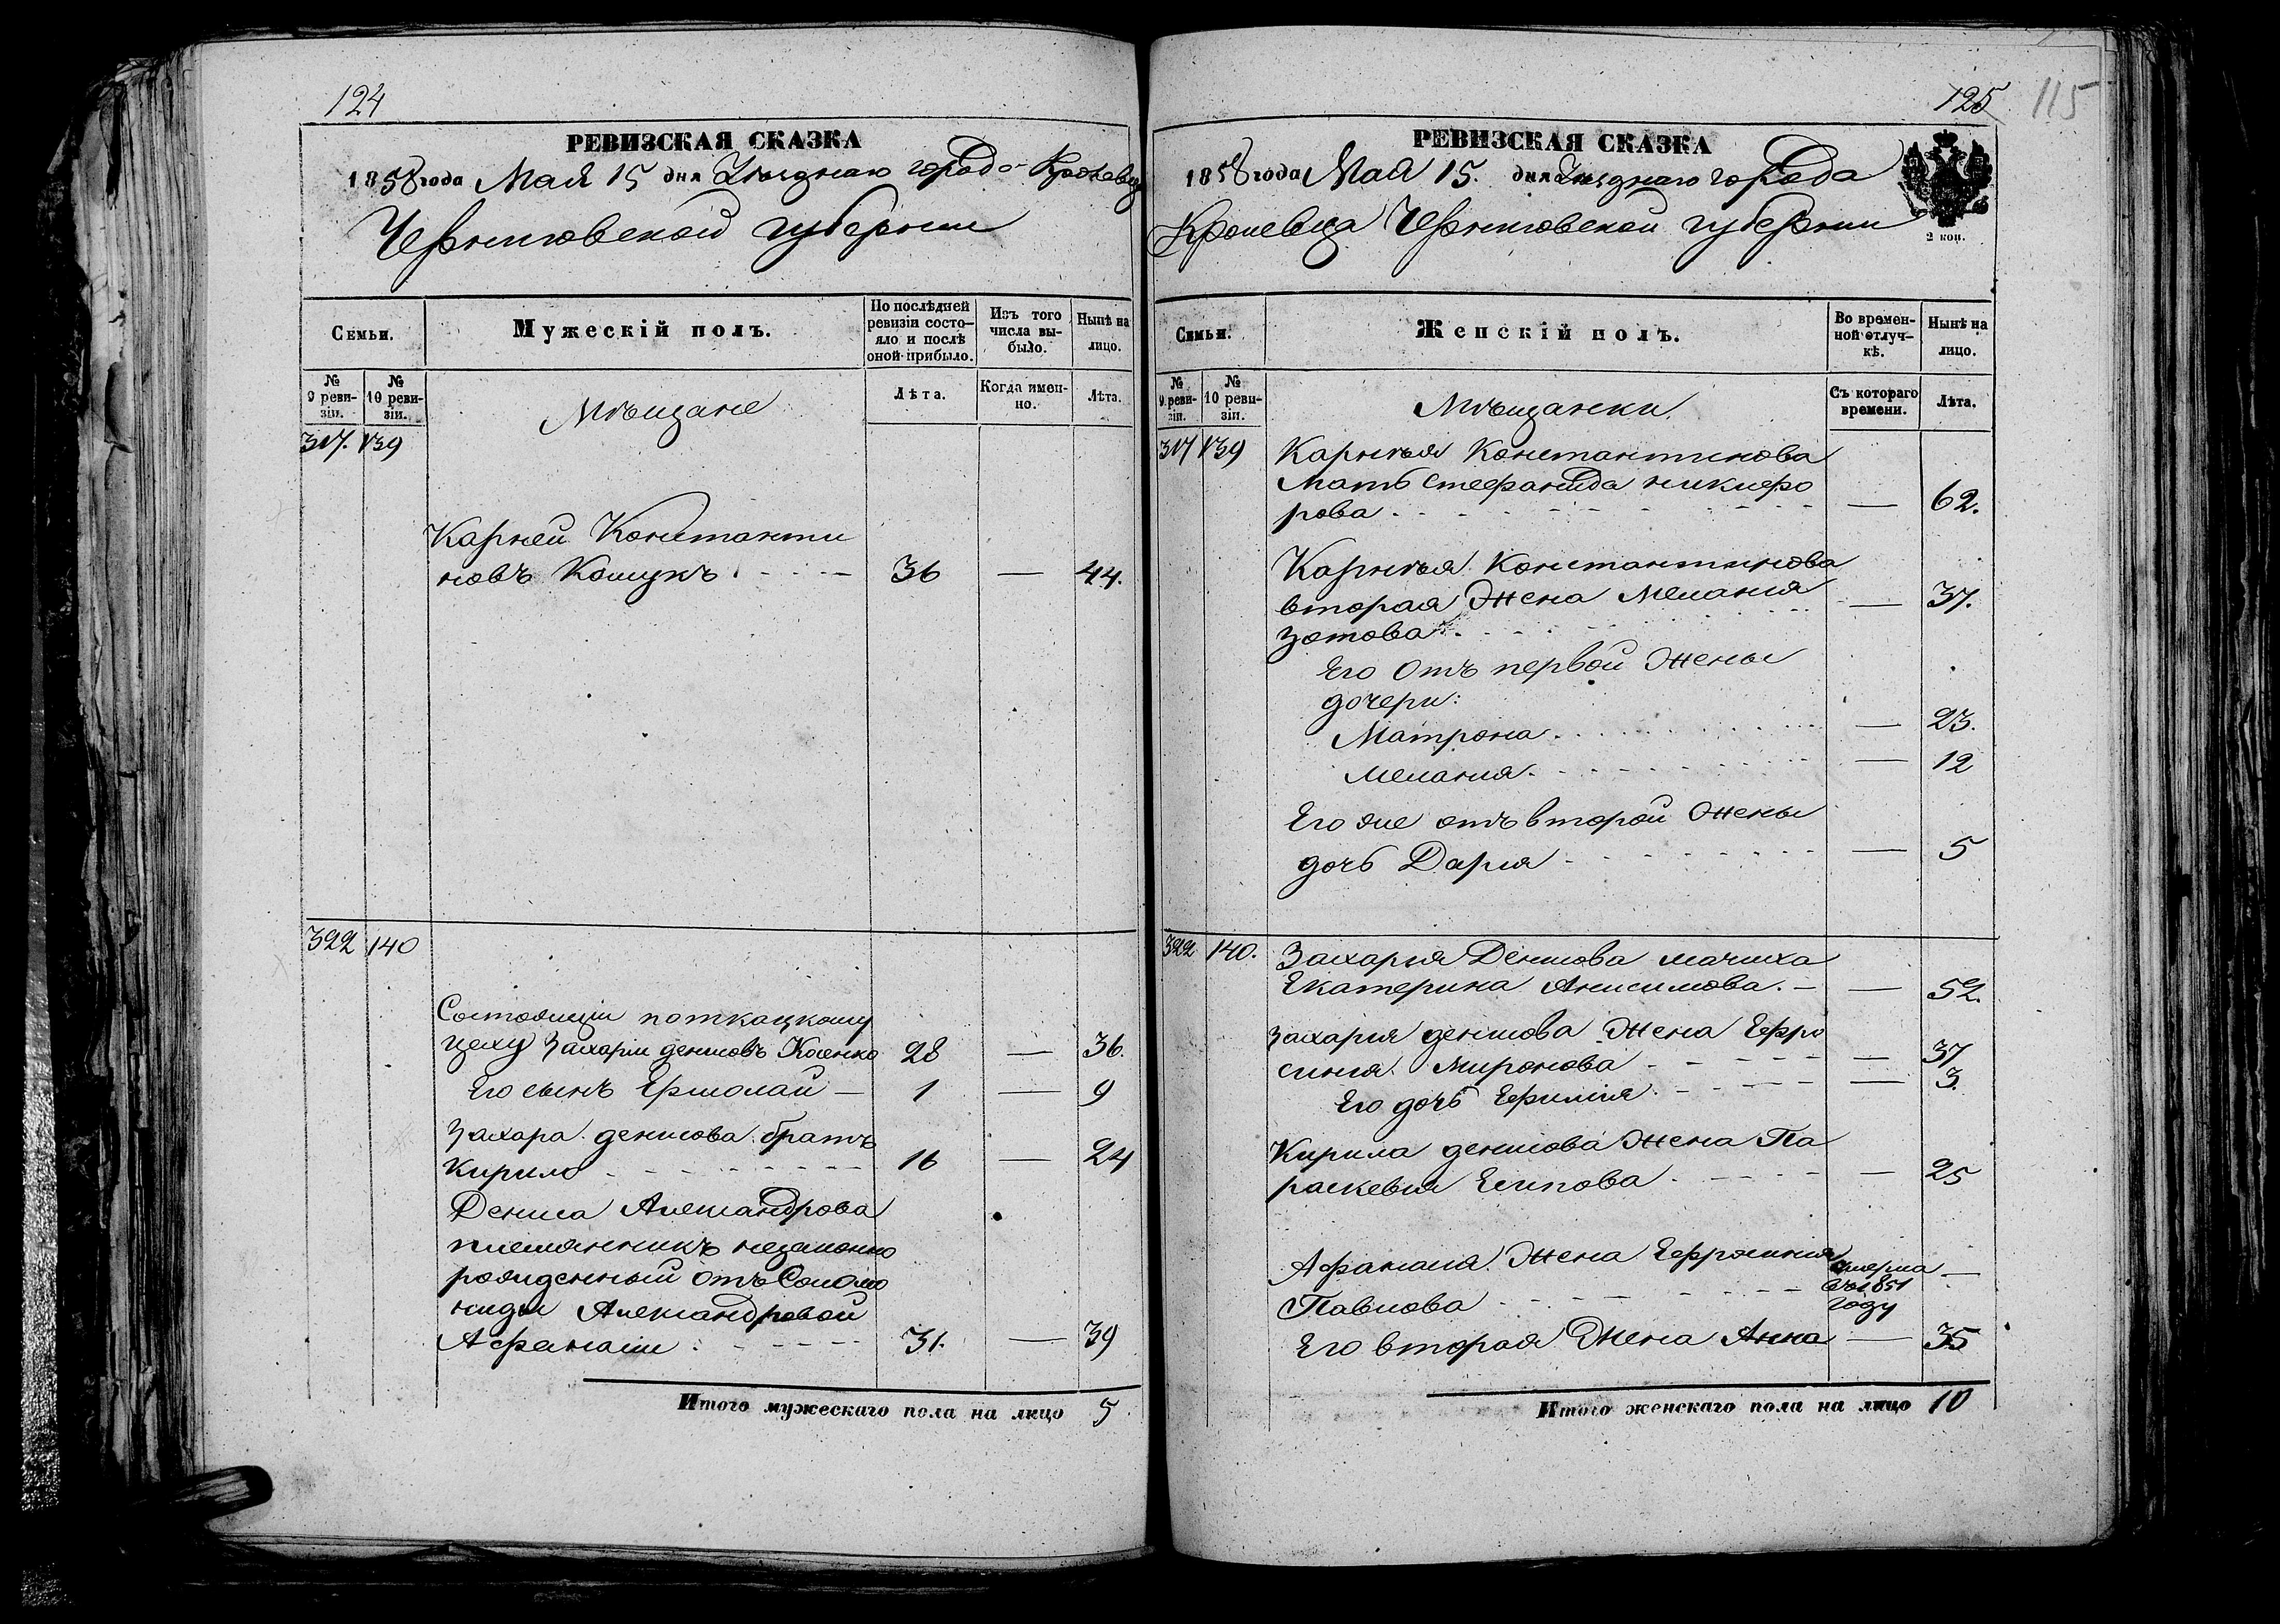 124
РЕВИЗСКАЯ СКАЗКА
1858 года Мая 15 дня Уѣзднаго города Кролевца
Черниговской губернии
Семьи.
Мужескій полъ.
По послѣдней ревизіи состояло и послѣ оной прибыло.
Изъ того числа выбыло.
Нынѣ на лицо.
№ 9 ревизіи.
№ 10 ревизіи.
Мѣщане
Лѣта.
Когда именно.
Лѣта.
317. 139
Карней Константи
новъ Кошукъ 36 — 44.
322 140
Состоящіи поткацкому
цеху Захаріи денисовъ Косенко 28 — 36.
Его сынъ Ермолай — 1 — 9
Захара денисова братъ
Кирило 16 — 24
Дениса Александрова
племянникъ незаконно
рожденный отъ Соломо
ниды Александровой
Афанасіи 31. — 39
Итого мужескаго пола на лицо 5
125
115
РЕВИЗСКАЯ СКАЗКА
1858 года Мая 15. дня Уѣзднаго города
Кролевца Черниговской губернии
2 коп.
Семьи.
Женскій полъ.
Во временной отлучкѣ.
Нынѣ на лицо.
№ 9 ревизіи.
№ 10 ревизіи.
Мѣщанки.
Съ котораго времени.
Лѣта.
317 139 Карнѣя Константинова
Мать Стефанида никифо
рова — 62.
Карнѣя Константинова
вторая Жена Мелания — 37.
Зотова
Его Отъ первой Жены
дочери:
Матрона — 23.
Мелания — 12
Его же отъ второй Жены
дочь Дария — 5
322 140. Захария Денисова мачиха
Екатерина Анисимова. — — 52.
Захария денисова Жена Ефро
синия Миронова — 37
Его дочь Ефимия — 3.
Кирила денисова Жена Па
раскевия Есипова — 25
Афанасия Жена Ефросиния
Павлова умерла въ 1851 году —
Его вторая Жена Анна — 35
Итого женскаго пола на лицо 10